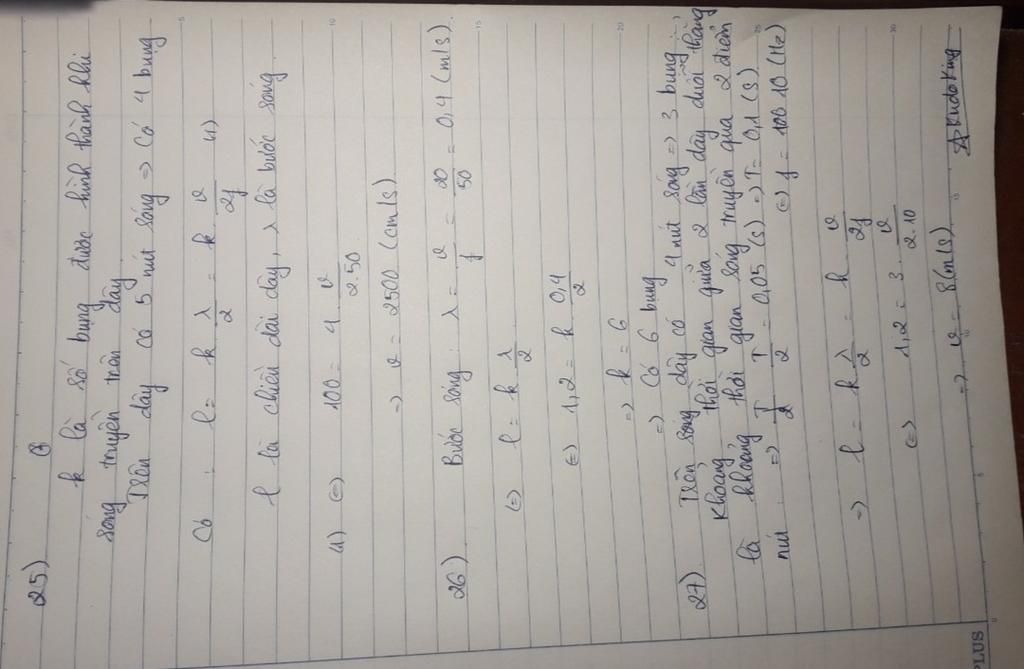 25)
k là số bụng được hình thành khi
sóng truyền trên dây
Trên dây có 5 nút sóng => Có 4 bụng
Có : l = k λ/2 = k v/2f (1)
l là chiều dài dây, λ là bước sóng
(1) (=) 100 = 4 v/2.50
=> v = 2500 (cm/s)
26) Bước sóng : λ = v/f = 20/50 = 0,4 (m/s).
(=) l = k λ/2
(=) 1,2 = k 0,4/2
=> k = 6
=> Có 6 bụng
27) Trên sóng dây có 4 nút sóng => 3 bụng
Khoảng thời gian giữa 2 lần dây duỗi thẳng
là khoảng thời gian sóng truyền qua 2 điểm
nút. => T/2 = 0,05 (s) => T = 0,1 (s)
(=) f = 10 (Hz)
=> l = k λ/2 = k v/2f
(=) 1,2 = 3. v/2.10
=> v = 8(m/s)
KudoKing
PLUS